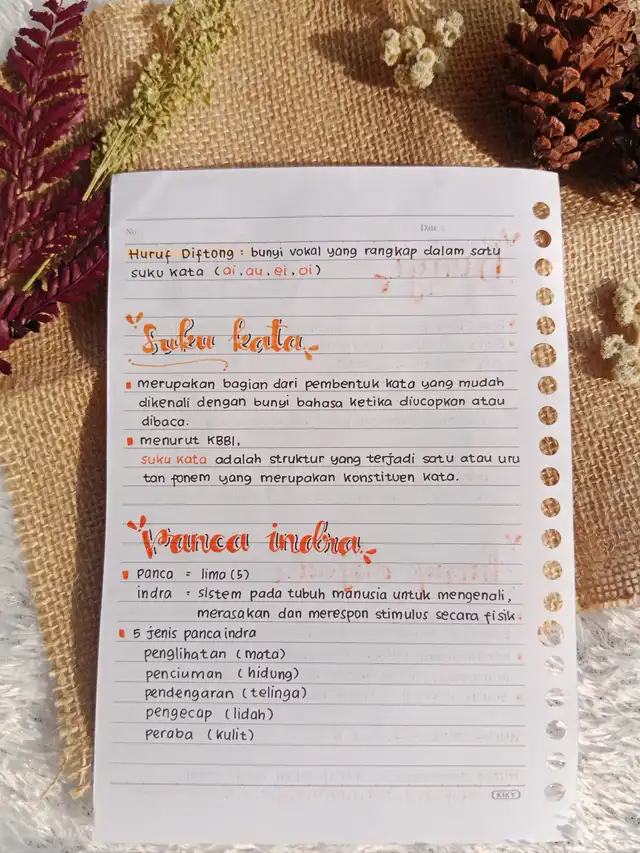 No.
Date :
Huruf Diftong : bunyi vokal yang rangkap dalam satu
suku kata (ai, au, ei, oi)
Suku kata
merupakan bagian dari pembentuk kata yang mudah
dikenali dengan bunyi bahasa ketika diucapkan atau
dibaca.
menurut KBBI,
suku kata adalah struktur yang terjadi satu atau uru
tan fonem yang merupakan konstituen kata.
Panca indra
panca = lima (5)
indra = sistem pada tubuh manusia untuk mengenali,
merasakan dan merespon stimulus secara fisik.
5 jenis panca indra
penglihatan (mata)
penciuman (hidung)
pendengaran (telinga)
pengecap (lidah)
peraba (kulit)
KIKY